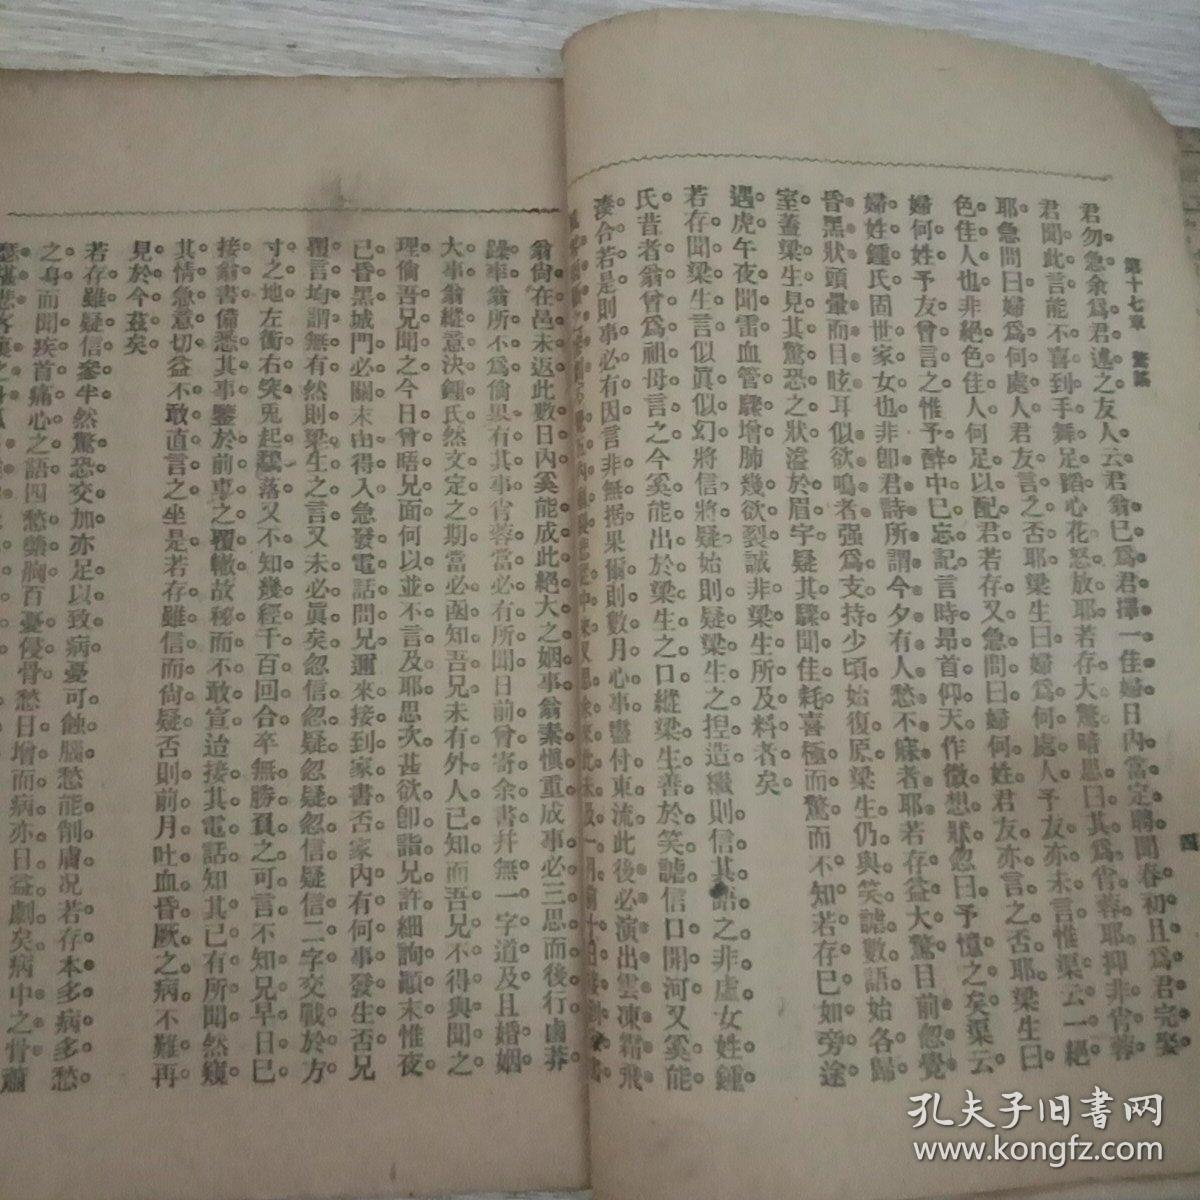 第十七章
四
君勿急余爲君述之友人云君翁已爲君擇一佳婦日內當定聘聞春初且爲君完娶
君聞此言能不喜到手舞足蹈心花怒放耶若存大驚暗思曰其爲肖蓉耶抑非肖蓉
耶急問曰婦爲何處人君友言之否耶梁生曰婦爲何處人予友亦未言惟渠云一絕
色佳人也非絕色佳人何足以配君若存又急問曰婦何姓君友亦言之否耶梁生曰
婦何姓予友曾言之惟予醉中已忘記言時昂首仰天作微想狀忽曰予憶之矣渠云
婦姓鍾氏固世家女也非卽君詩所謂今夕有人愁不寐者耶若存益大驚目前忽覺
昏黑狀頭暈而目眩耳似欲鳴者强爲支持少頃始復原梁生仍與笑謔數語始各歸
室蓋梁生見其驚恐之狀溢於眉宇疑其驟聞佳耗喜極而驚而不知若存已如旁途
遇虎午夜聞雷血管驟增肺幾欲裂誠非梁生所及料者矣
若存聞梁生言似眞似幻將信將疑始則疑梁生之捏造繼則信其語之非虛女姓鍾
氏昔者翁曾爲祖母言之今奚能出於梁生之口縱梁生善於笑謔信口開河又奚能
湊合若是則事必有因言非無据果爾則數月心事盡付東流此後必演出雲凍霜飛
翁尙在邑未返此數日內奚能成此絕大之姻事翁素愼重成事必三思而後行鹵莽
躁率翁所不爲倘果有其事肖蓉當必有所聞日前曾寄余書并無一字道及且婚姻
大事翁縱意決鍾氏然文定之期當必函知吾兄未有外人已知而吾兄不得與聞之
理倘吾兄聞之今日曾晤兄面何以並不言及耶思次甚欲卽詣兄許細詢顚末惟夜
已昏黑城門必關末由得入急發電話問兄邇來接到家書否家內有何事發生否兄
覆言均謂無有然則梁生之言又未必眞矣忽信忽疑忽疑忽信疑信二字交戰於方
寸之地左衝右突兎起鶻落又不知幾經千百回合卒無勝負之可言不知兄早日已
接翁書備悉其事鑒於前車之覆轍故秘而不敢宣迨接其電話知其已有所聞然窺
其情急意切益不敢直言之坐是若存雖信而尙疑否則前月吐血昏厥之病不難再
見於今茲矣
若存雖疑信參半然驚恐交加亦足以致病憂可蝕腦愁能削膚况若存本多病多愁
之身而聞疾首痛心之語四愁縈胸百憂侵骨愁日增而病亦日益劇矣病中之骨蕭
孔夫子旧书网
www.kongfz.com